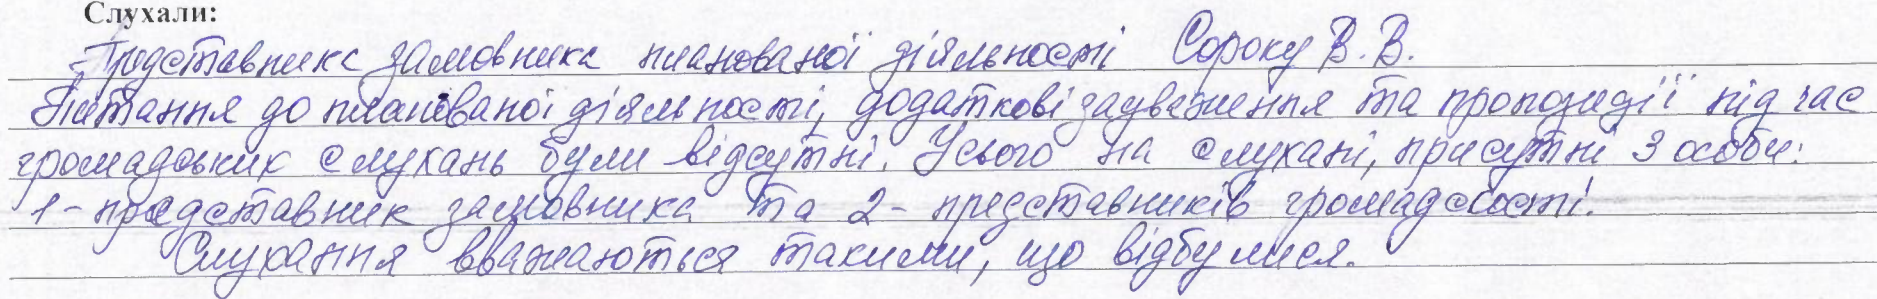 Слухали:
Представника замовника планованої діяльності Сороку В. В.
Питання до планованої діяльності, додаткові зауваження та пропозиції під час
громадських слухань були відсутні. Усього на слухані, присутні 3 особи:
1 - представник замовника та 2 - представників громадськості.
Слухання вважаються такими, що відбулися.